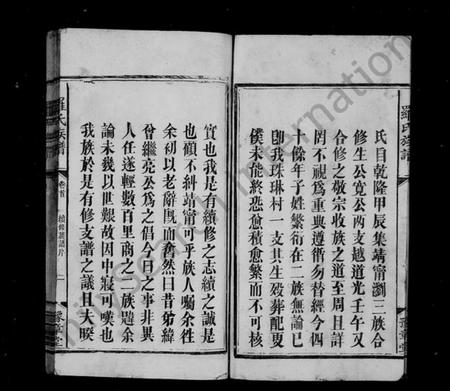 羅氏族譜
氏自乾隆甲辰集靖甯瀏三族合
修生公寬公兩支越道光壬午又
合修之敬宗收族之道至周且詳
罔不視為重典遵循勿替經今四
十餘年子姓繁衍在二族無論已
即我珠琳村一支其生歿葬配更
僕未能終悉愈積愈繁而不可核
實也我是有續修之志續之誠是
也顧不糾靖甯可乎族人囑余往
余初以老辭既而奮然曰昔弟緯
曾繼亮公為之倡今日之事非異
人任遂輕數百里商之二族躊余
論未幾以世艱故因中寢可嘆也
我族於是有修支譜之議且夫睽
羅氏族譜
卷首
二
豫章堂